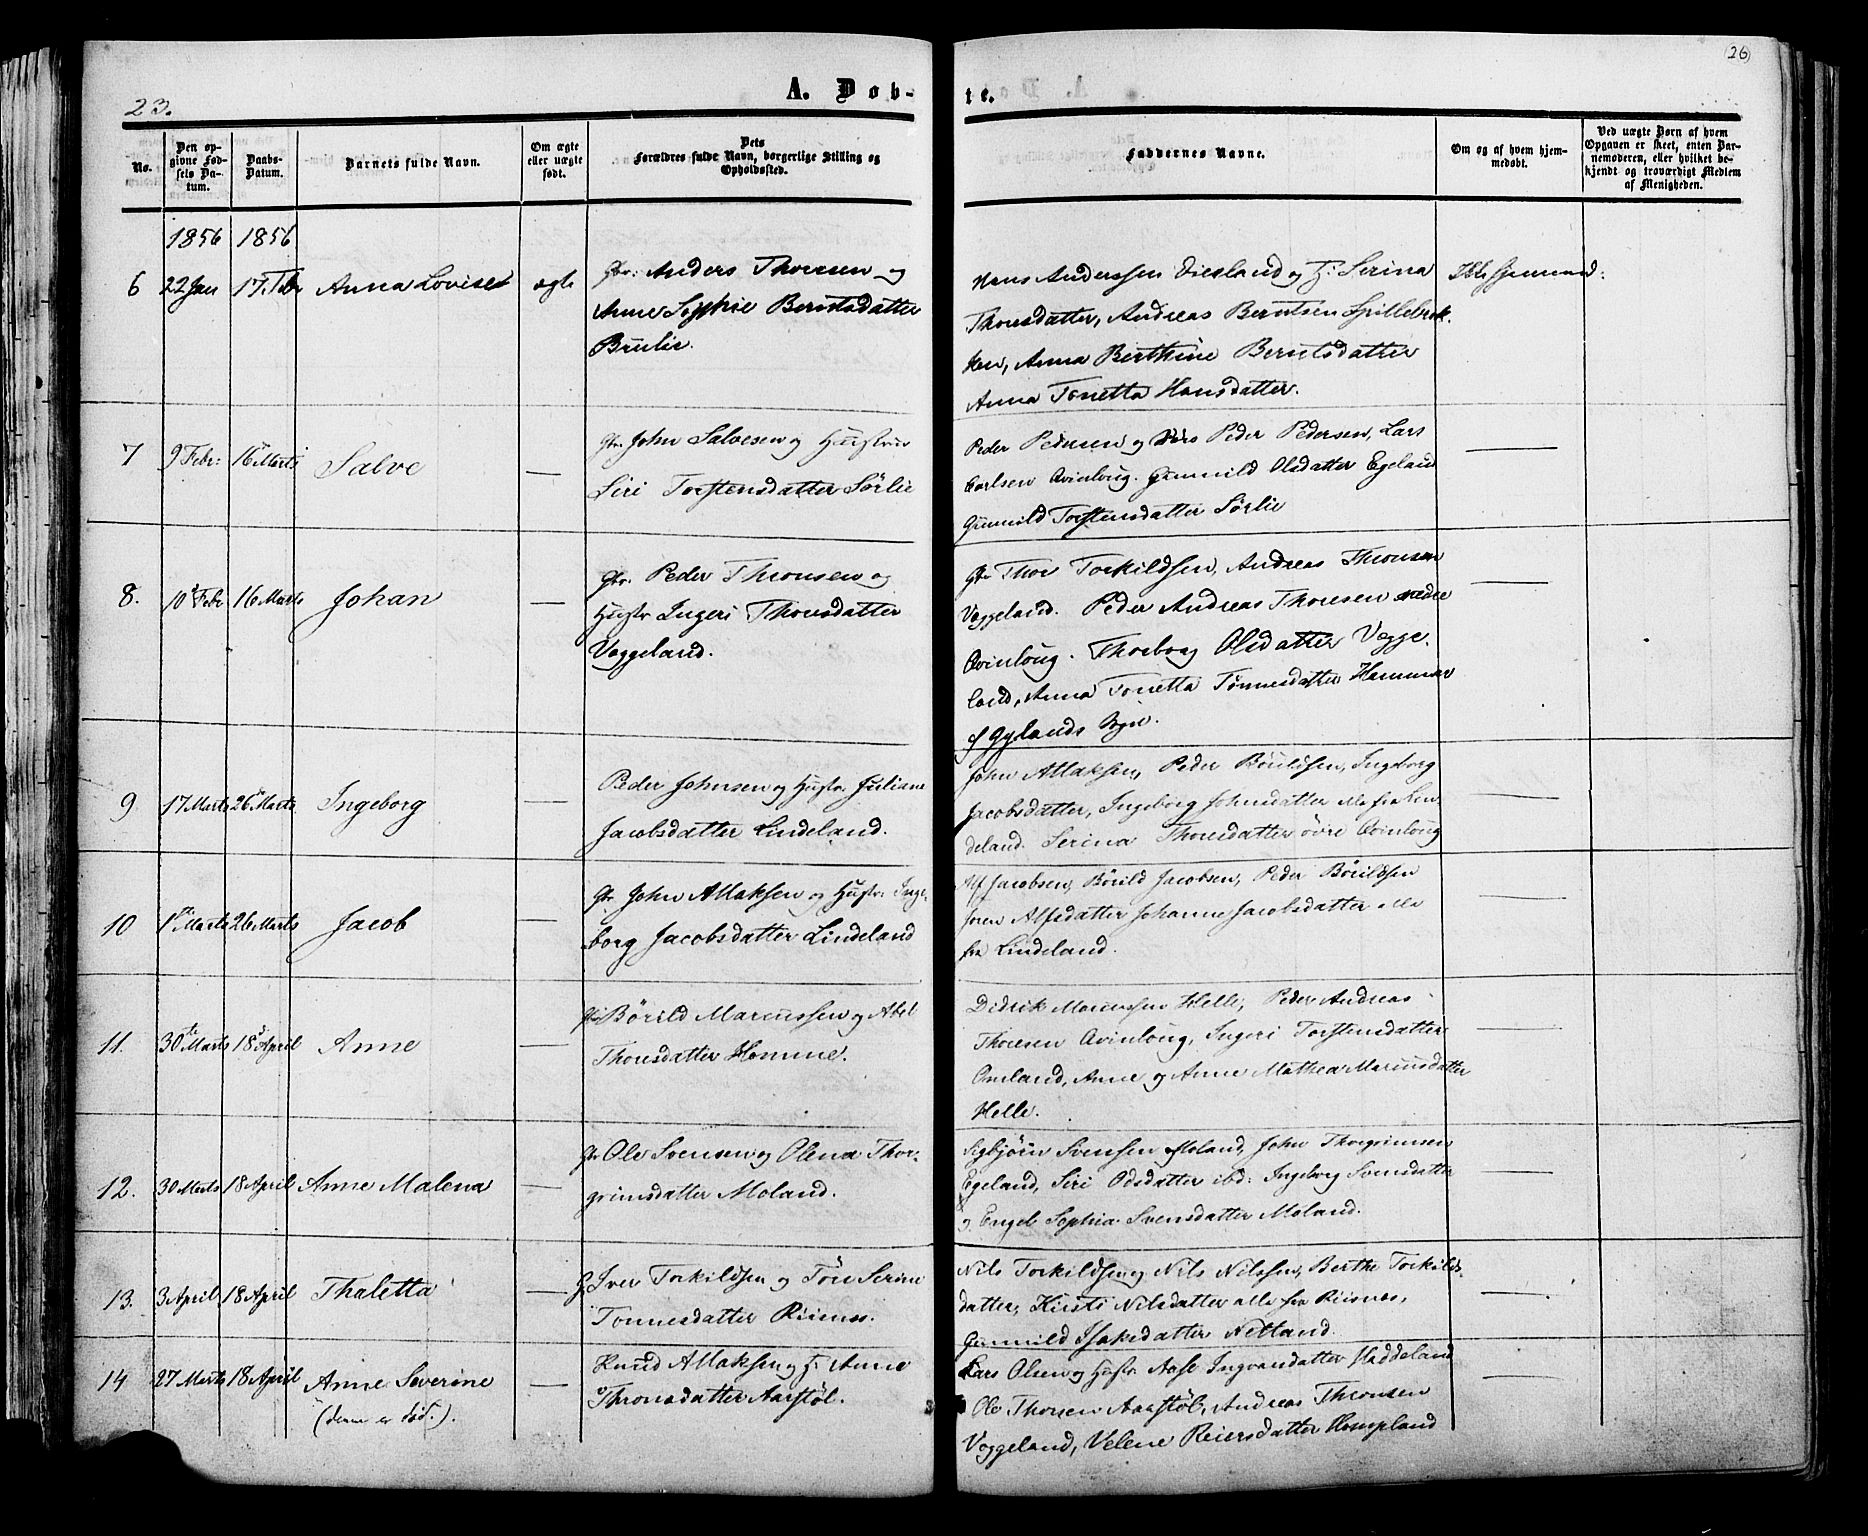 23.
(26)
A. Døb-
te.
No.
Den op-
givne Fød-
sels Da-
tum.
Daabs-
Datum.
Barnets fulde Navn.
Om ægte
eller uægte
født.
Dets
Forældres fulde Navn, borgerlige Stilling og
Opholdssted.
Faddernes Navne.
Om og af hvem hjem-
medøbt.
Ved uægte Børn af hvem
Opgaven er skeet, enten Bar-
nemoderen, eller hvilket be-
kjendt og troværdigt Medlem
af Menigheden.
1856 1856
6 22 Jan 17 Feb Anna Lovise ægte
Gbr: Anders Thorsen og
Anne Sophie Berntsdatter
Brulie.
Hans Anderssen Eiesland og H: Serina
Thorsdatter, Andreas Berntsen Spillebrok-
ken, Anna Berthine Berntsdatter
Anna Tonetta Hansdatter.
7 9 Febr: 16 Marts Salve —
Gbr. John Salvesen og Hustru
Siri Torstensdatter Sørlie
Peder Pedersen og Peder Pedersen, Lars
Carlsen Qvinloug. Gunnild Olsdatter Egeland
Gunnild Torstensdatter Sørlie
—
8. 10 Febr 16 Marts Johan —
Gbr. Peder Thronsen og
Hustr Ingeri Thorsdatter
Voggeland.
Gbr Thor Torkildsen, Andreas Thronsen
Voggeland. Peder Andreas Thoresen nedre
Qvinloug. Thorborg Olsdatter Vogge-
land, Anna Tonetta Tønnesdatter Hammer
f Gylands Sogn.
—
9. 17 Marts 26 Marts Ingeborg —
Peder Johnsen og Hustr Juliane
Jacobsdatter Lindeland.
John Atlaksen, Peder Børildsen, Ingeborg
Jacobsdatter, Ingeborg Johnsdatter alle fra Lin-
deland. Serina Thorsdatter øvre Qvinloug
—
10 1 Marts 26 Marts Jacob —
Gbr. John Atlaksen og Hustr: Inge-
borg Jacobsdatter Lindeland
Alf Jacobsen, Børild Jacobsen, Peder Børildsen
Joren Alfsdatter Johanne Jacobsdatter alle
fra Lindeland.
—
11. 30te Marts 18 April Anne —
Gbr Børild Marcussen og Abel
Thorsdatter Homme.
Didrik Marcussen Helle, Peder Andreas
Thoresen Qvinloug, Ingeri Torstensdatter
Omland, Anne og Anne Mathea Marcusdatter
Helle.
—
12. 30 Marts 18 April Anne Malena —
Gbr Ole Svensen og Olena Thor-
grimsdatter Moland.
Sigbjörn Svensen Moland, John Thorgrimsen
Egeland, Siri Odsdatter ibd: Ingeborg Svensdatter
og Engel Sophia Svensdatter Moland.
—
13. 3 April 18 April Thaletta —
G. Iver Torkildsen og Tön Serine
Tonnesdatter Risnes.
Nils Torkildsen og Nils Nilssen, Berthe Torkilds-
datter, Kirsti Nilsdatter alle fra Risnes,
Gunnild Isaksdatter Netland.
—
14 27 Marts 18 April Anne Severine —
(denne er død.).
Knud Atlaksen og H: Anne
Thronsdatter Aarstøl.
Lars Olsen og Hustr Aase Ingvaldsdatter Haddeland
Ole Thorsen Aarstøl, Andreas Thronsen
Voggeland, Velene Reiersdatter Hompland
—